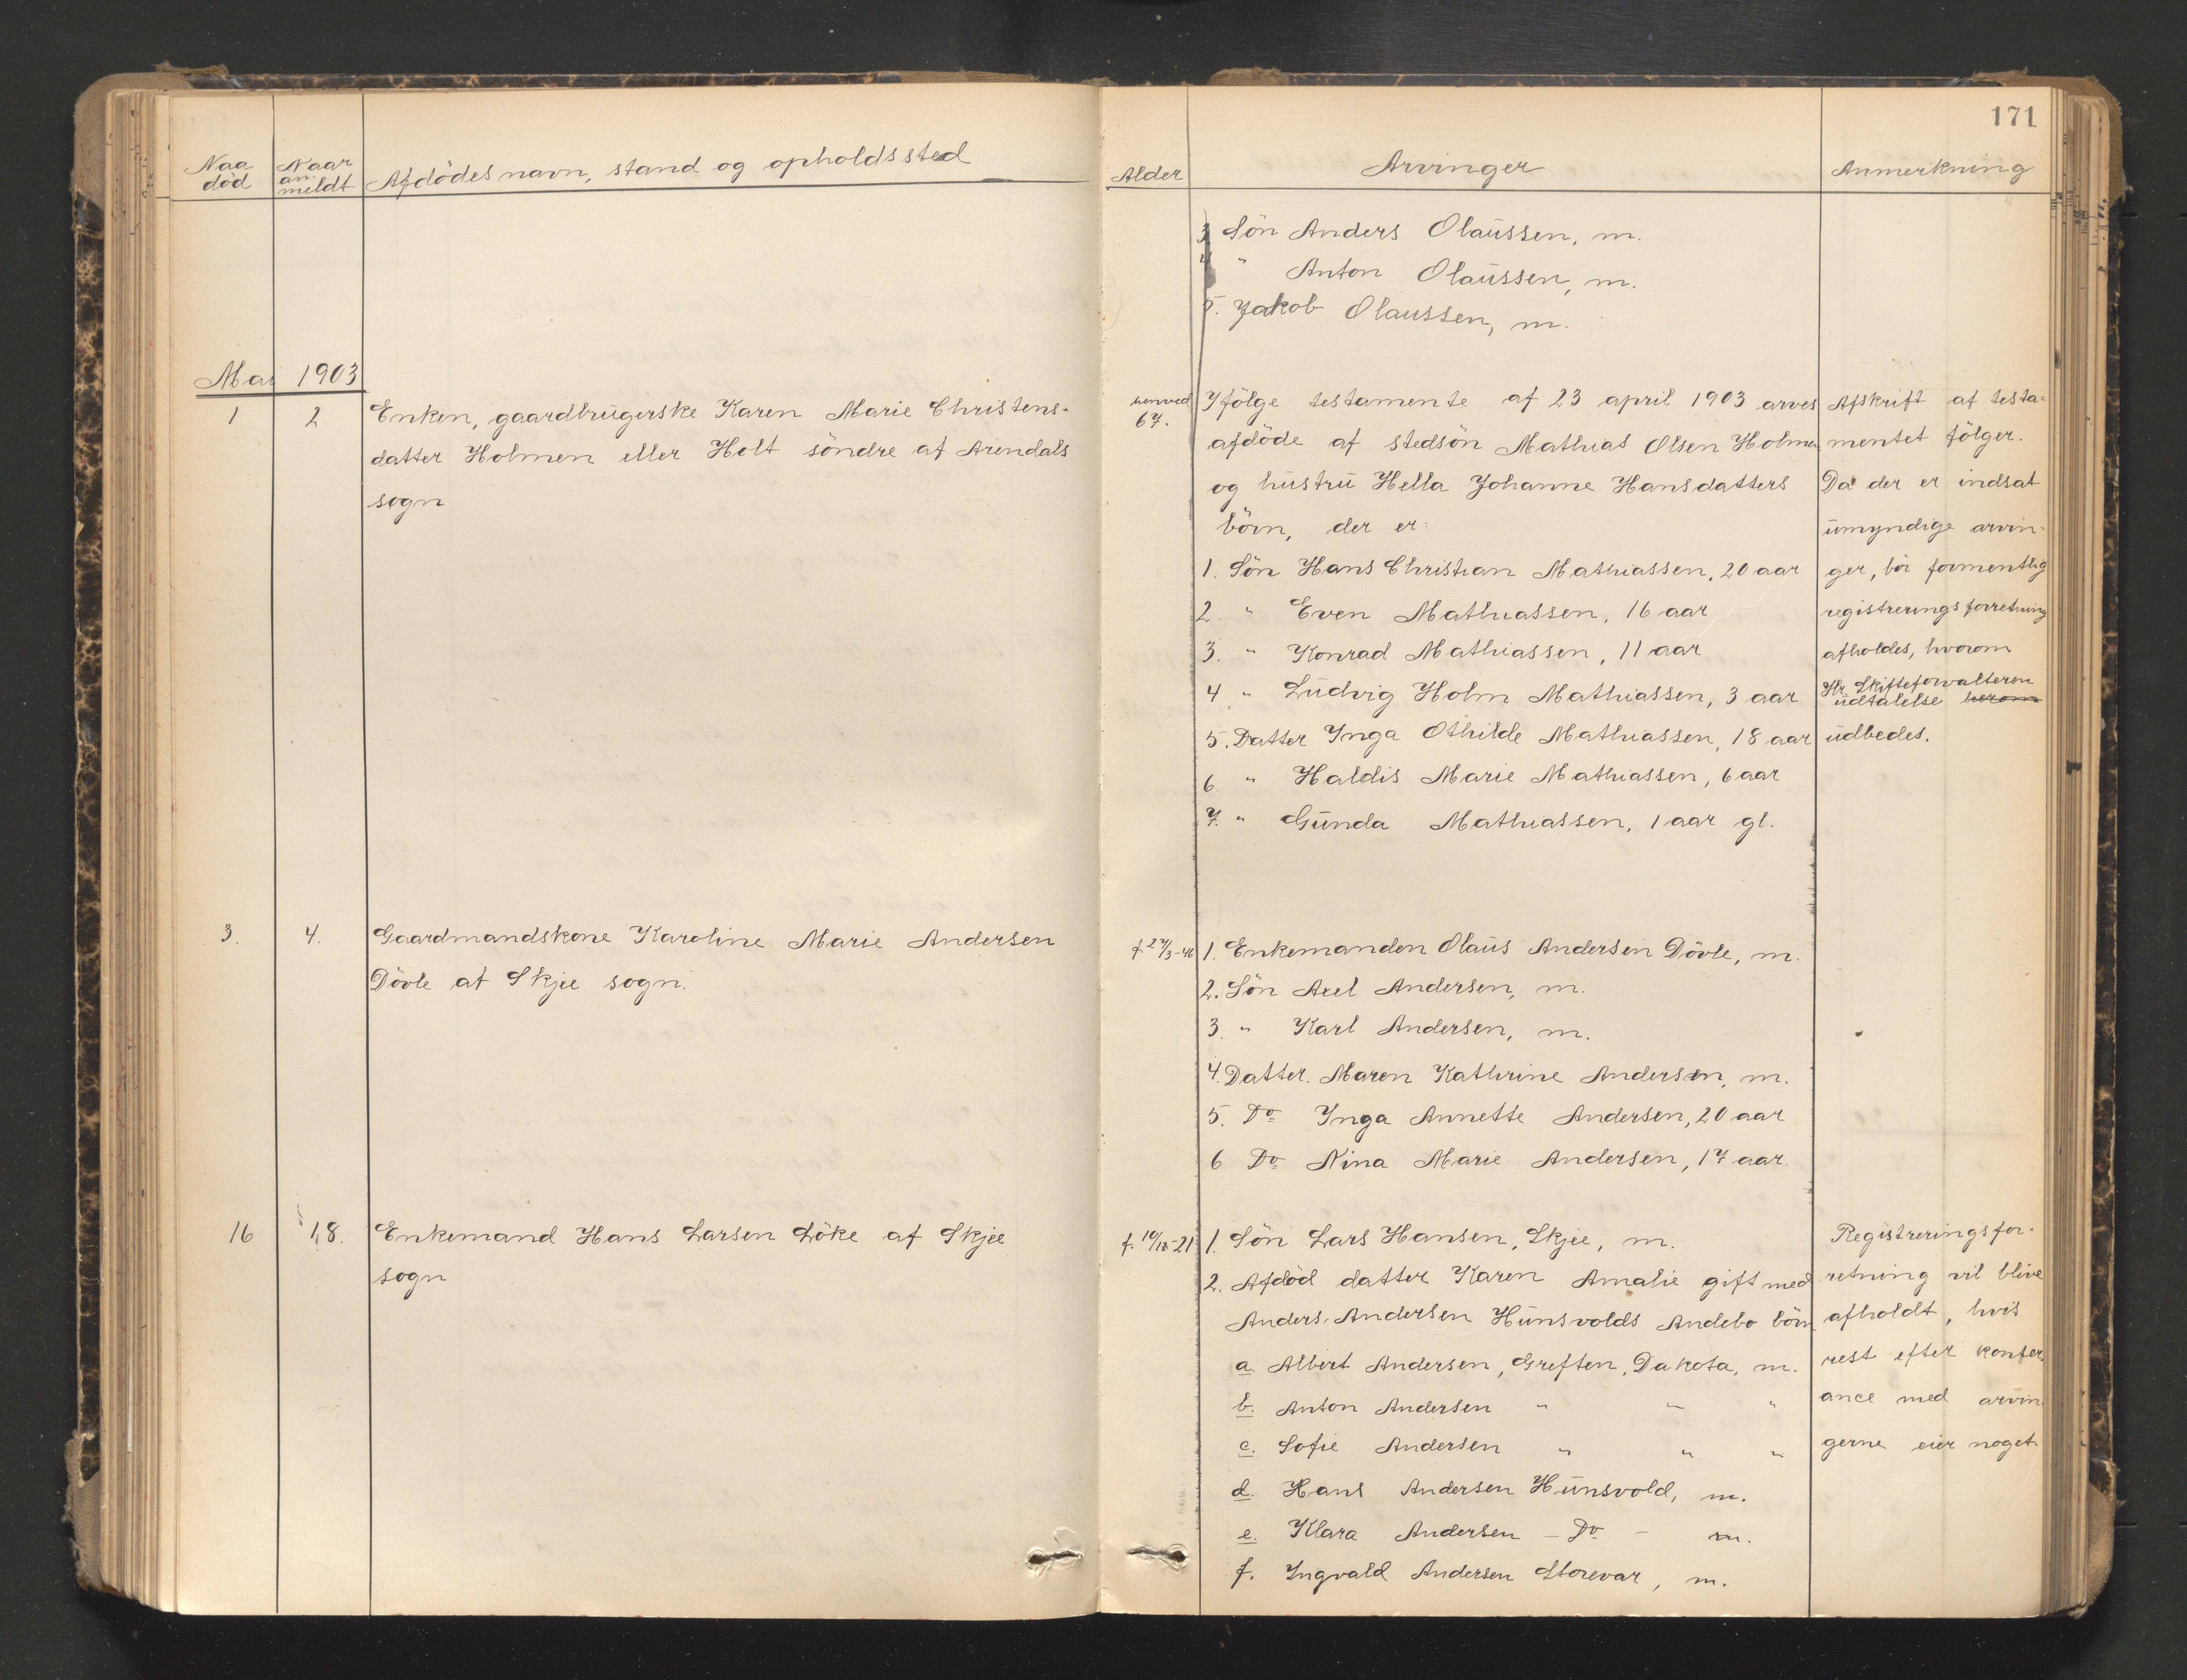 171
Naa død
Naar an. meldt
Afdödes navn, stand og opholdssted
Alder
Arvinger
Anmerkning
3 Sön Anders Olaussen, m.
4 " Anton Olaussen, m.
5. Jakob Olaussen, m.
Mai 1903
1
2
Enken, gaardbrugerske Karen Marie Christens-
datter Holmen eller Holt söndre af Arendals
sogn
henved
67.
Ifölge testamente af 23 april 1903 arves
afdöde af stedsön Mathias Olsen Holmen
og hustru Hella Johanne Hansdatters
börn, der er:
1. Sön Hans Christian Mathiassen, 20 aar
2. " Even Mathiassen, 16 aar
3. " Konrad Mathiassen, 11 aar
4 " Ludvig Holm Mathiassen, 3 aar
5. Datter Inga Othilde Mathiassen, 18 aar
6 " Haldis Marie Mathiassen, 6 aar
7. " Gunda Mathiassen, 1 aar gl.
Afskrift af testa=
mentet fölger.
Da der er indsat
umyndige arvin-
ger, bör formentlig
registreringsforretning
afholdes, hvorom
Hr. Skifteforvalteren
udtalelse herom
udbedes.
3.
4.
Gaardmandskone Karoline Marie Andersen
Dövle af Skjee sogn.
f. 27/3-46
1. Enkemanden Olaus Andersen Dövle, m.
2. Sön Axel Andersen, m.
3. " Karl Andersen, m.
4. Datter. Maren Kathrine Andersen, m.
5. Do Inga Annette Andersen, 20 aar
6 Do Nina Marie Andersen, 17 aar.
16
18.
Enkemand Hans Larsen Löke af Skjee
sogn
f. 10/12-21
1. Sön Lars Hansen, Skjee, m.
2. Afdöd datter Karen Amalie gift med
Anders Andersen Hunsvolds Andebo börn
a. Albert Andersen, Greften, Dakota, m.
b. Anton Andersen " " "
c. Sofie Andersen " " "
d. Hans Andersen Hunsvold, m.
e. Klara Andersen - Do - m.
f. Ingvald Andersen Storevar, m.
Registreringsfor-
retning vil blive
afholdt, hvis
rest efter konfer
ance med arvin
gerne eier noget.